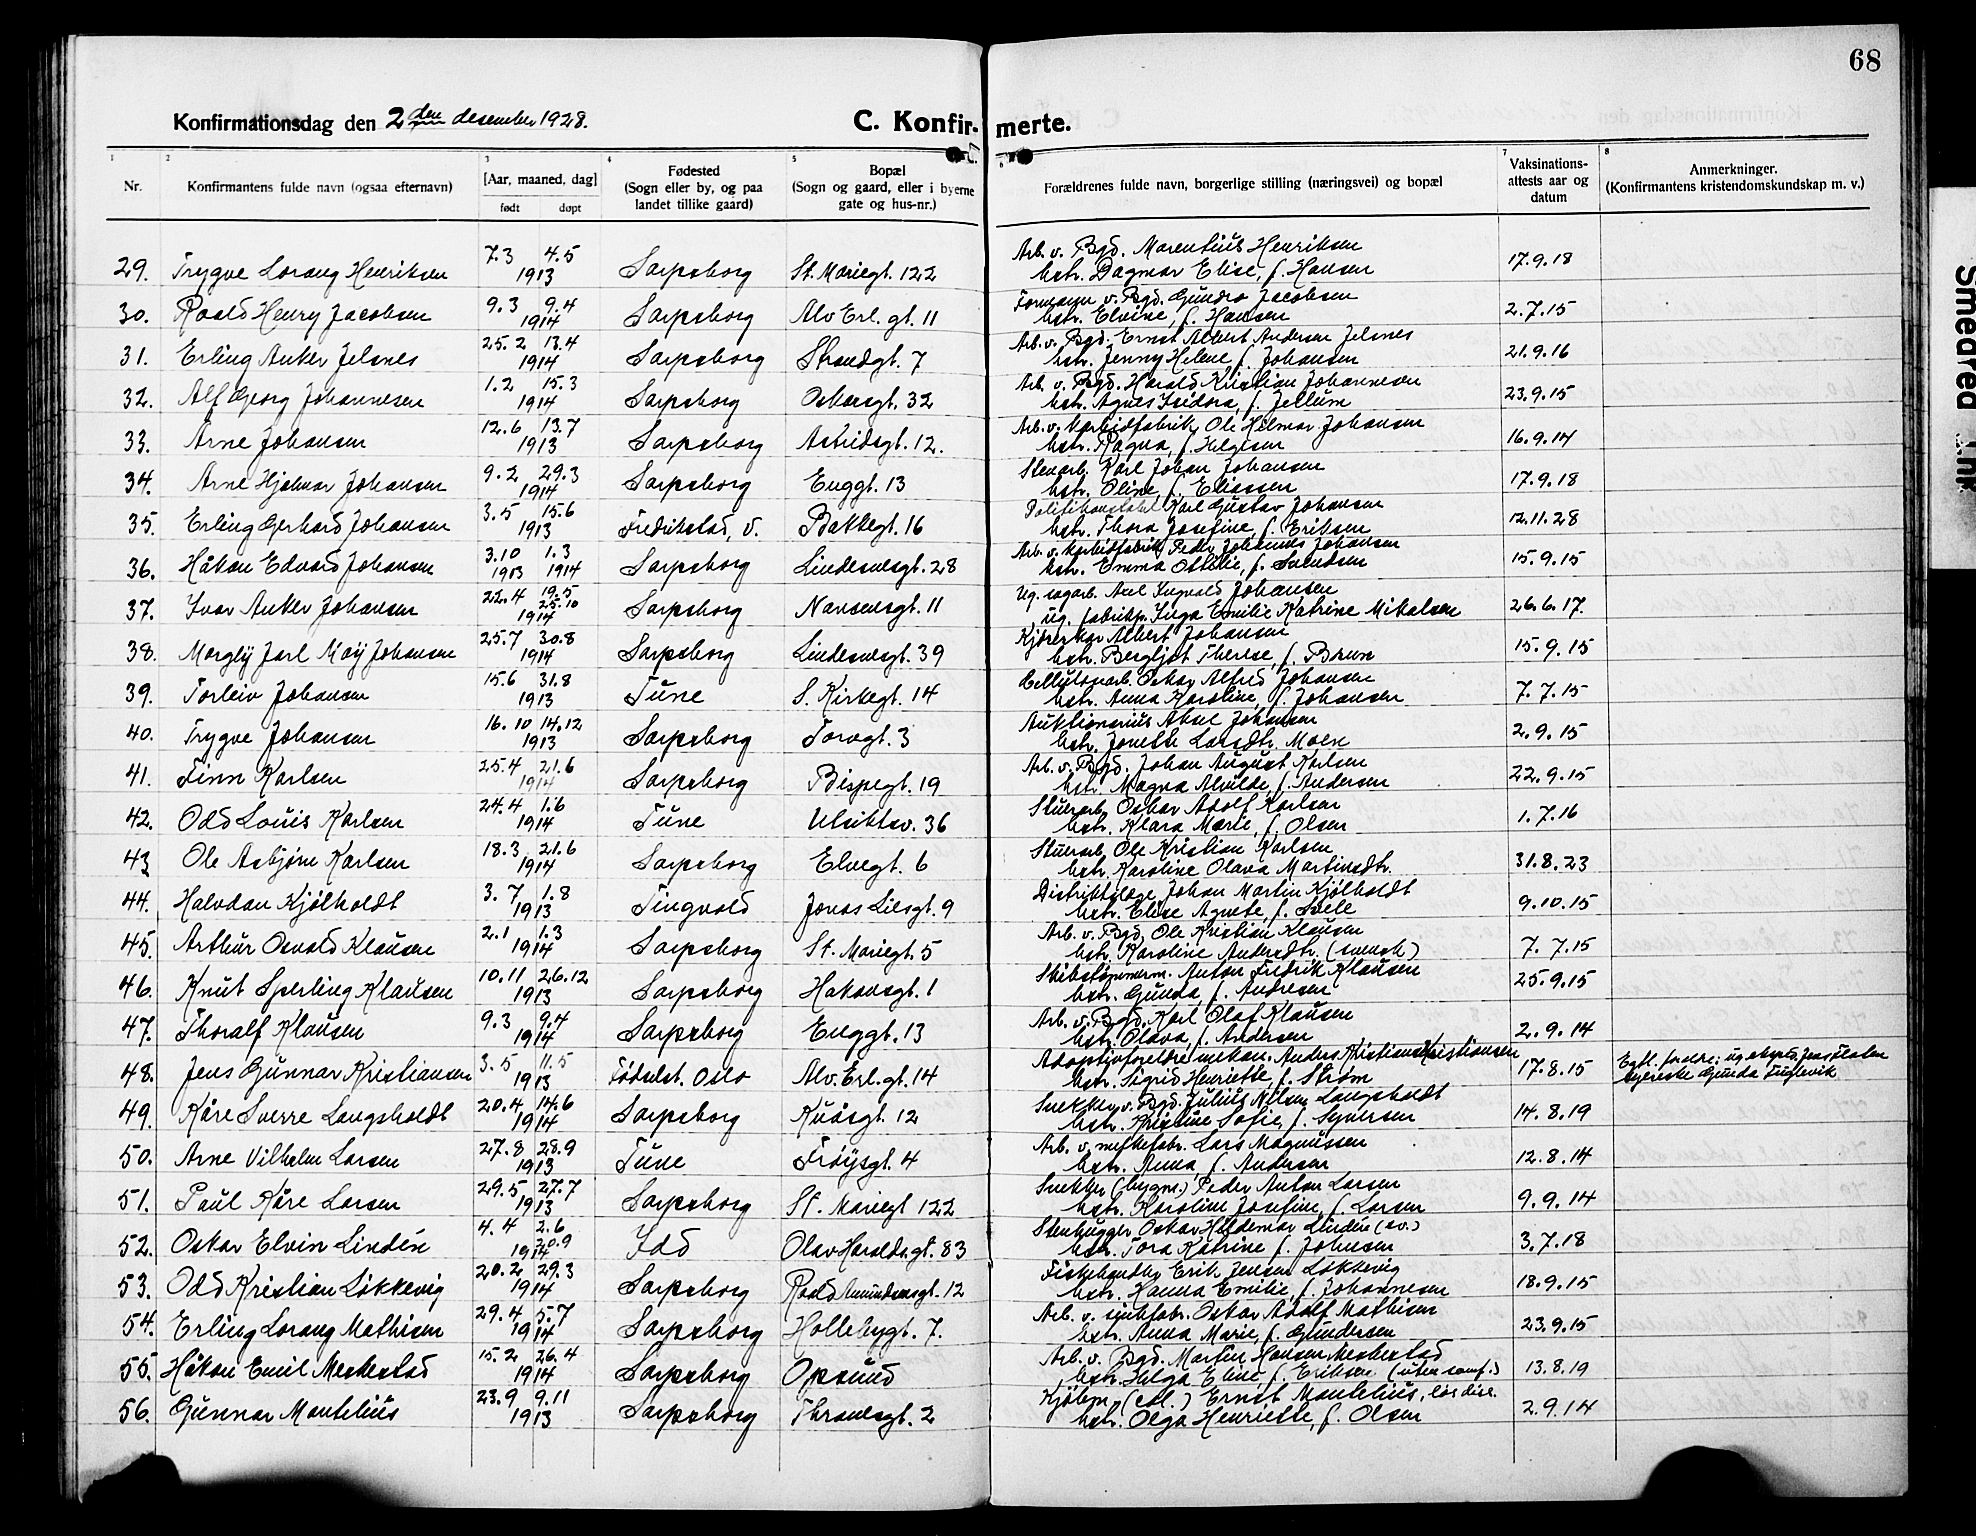 68
Konfirmationsdag den 2den desember 1928.
C. Konfir- merte.
1 2 3 4 5 7 8
Nr.
Konfirmantens fulde navn (ogsaa efternavn)
[Aar, maaned, dag]
født døpt
Fødested
(Sogn eller by, og paa
landet tillike gaard)
Bopæl
(Sogn og gaard, eller i byerne
gate og hus-nr.)
Forældrenes fulde navn, borgerlige stilling (næringsvei) og bopæl
Vaksinations-
attests aar og
datum
Anmerkninger.
(Konfirmantens kristendomskundskap m. v.)
29. Trygve Lorang Henriksen 7.3 4.5 1913 Sarpsborg St. Mariegt. 122 Arb. v. Bgd. Marentius Henriksen
hstr. Dagmar Elise, f. Hansen 17.9.18
30. Roald Henry Jacobsen 9.3 9.4 1914 Sarpsborg Alv Erl. gt. 11 Formann v. Bgd. Gundro Jacobsen
hstr. Elvine, f. Hansen 2.7.15
31. Erling Anker Jelsnes 25.2 13.4 1914 Sarpsborg Strandgt. 7 Arb. v. Bgd. Ernst Albert Andersen Jelsnes
hstr. Jenny Helene f. Johansen 21.9.16
32. Alf Georg Johannesen 1.2 15.3 1914 Sarpsborg Oskarsgt. 32 Arb. v. Bgd. Harald Kristian Johannesen
hstr. Agnes Isidora, f. Jellum 23.9.15
33. Arne Johansen 12.6 13.7 1913 Sarpsborg Astridsgt. 12. Arb. v. Karbidfabrik Ole Hilmar Johansen
hstr. Ragna, f. Helgesen 16.9.14
34. Arne Hjalmar Johansen 9.2 29.3 1914 Sarpsborg Enggt. 13 Stenarb. Karl Johan Johansen
hstr. Oline, f. Eliassen 17.9.18
35. Erling Gerhard Johansen 3.5 15.6 1913 Fredrikstad, v. Bakkegt. 16 Karl Gustav Johansen
hstr. Thora Josefine, f. Eriksen 12.11.28
36. Håkon Edvard Johansen 3.10 1.3 1913 1914 Sarpsborg Lindesnesgt. 28 Arb. v. Karbidfabrik Peder Johannes Johansen
hstr. Emma Othilie, f. Svendsen 15.9.15
37. Ivar Anker Johansen 22.4 19.5 25.10 1914 Sarpsborg Nansensgt. 11 Ug. sagarb. Axel Ingvald Johansen
ug. fabrikp. Inga Emilie Katrine Mikalsen 26.6.17.
38. Margly Jarl May Johansen 25.7 30.8 1914 Sarpsborg Lindesnesgt. 39 Kjørekar Albert Johansen
hstr. Bergljot Therese, f. Brun 15.9.15
39. Torleiv Johansen 15.6 31.8 1913 Tune S. Kirkegt. 14 Cellulosearb. Oskar Alfred Johansen
hstr. Anna Karoline, f. Johansen 7.7.15
40. Trygve Johansen 16.10 14.12 1913 Sarpsborg Torvgt. 3 Auktionarius Aksel Johansen
hstr. Jonette Larsdtr. Moen 2.9.15
41. Finn Karlsen 25.4 21.6 1914 Sarpsborg Bispegt. 19 Arb. v. Bgd. Johan August Karlsen
hstr. Magna Alvilde, f. Andersen 22.9.15
42. Odd Louis Karlsen 24.4 1.6 1914 Tune Utsiktsv. 36 Stuerarb. Oskar Adolf Karlsen
hstr. Klara Marie, f. Olsen 1.7.16
43 Ole Asbjørn Karlsen 18.3 21.6 1914 Sarpsborg Elvegt. 6 Stuerarb. Ole Kristian Karlsen
hstr. Karoline Olava Martinsdtr. 31.8.23
44. Halvdan Kjølholdt 3.7 1.8 1913 Tingvold Jonas Liesgt. 9 Distriktslæge Johan Martin Kjølholdt
hstr. Elise Agnete, f. 9.10.15
45. Arthur Osvald Klausen 2.1 1.3 1914 Sarpsborg St. Mariegt. 5 Arb. v. Bgd. Ole Kristian Klausen
hstr. Karoline Andersdtr. (svensk) 7.7.15
46. Knut Sperling Klausen 10.11 26.12 1913 Sarpsborg Hakonsgt. 1 Skibstømmerm. Anton Fredrik Klausen
hstr. Gunda, f. Andresen 25.9.15
47. Thoralf Klausen 9.3 9.4 1914 Sarpsborg Enggt. 13 Arb. v. Bgd. Karl Olaf Klausen
hstr. Olava, f. Andersen 2.9.14
48. Jens Gunnar Kristiansen 3.5 11.5 1913 Fødselst. Oslo Alv. Erl. gt. 14 Adoptivforeldre: mekan. Anders Kristian Kristiansen
hstr. Sigrid Henriette, f. Strøm 17.8.15 Egtl. foreldre: ug. Jens
syerske Gunda Fuglevik
49. Kåre Sverre Langsholdt 20.4 14.6 1914 Sarpsborg Kuåsgt. 12 Snekker v. Bgd. Julius Nilsen Langsholdt
hstr. Kristine Sofie, f. Syversen 14.8.19
50. Arne Vilhelm Larsen 27.8 28.9 1913 Tune Frøysgt. 4 Arb. v. Lars Magnussen
hstr. Anna, f. Andersen 12.8.14
51. Paul Kåre Larsen 29.5 27.7 1913 Sarpsborg St. Mariegt 122 Snekker (bygns.) Peder Anton Larsen
hstr. Karoline Josefine, f. Larsen 9.9.14
52. Oskar Elvin Lindén 4.4 2.6 20.9 1914 Idd Olav Haraldsgt. 83 Stenhugger Oskar Hildemar Linden (sv.)
hstr. Tora Katrine f. Johnsen 3.7.18
53. Odd Kristian Løkkevig 20.2 29.3 1914 Sarpsborg Roald Amundsensgt. 12 Fiskehandler Erik Jensen Løkkevig
hstr. Hanna Emilie, f. Johannesen 18.9.15
54. Erling Lorang Mathisen 29.4 5.7 1914 Sarpsborg Hollebygt. 7. Arb. v. Oskar Adolf Mathisen
hstr. Anna Marie, f. Gundersen 23.9.15
55. Håkon Emil Meskestad 15.2 26.4 1914 Sarpsborg Opsund Arb. v. Bgd. Martin Hansen Meskestad
hstr. Helga Eline, f. Eriksen (uten samf.) 13.8.19
56. Gunnar Montelius 23.9 9.11 1913 Sarpsborg Thranesgt. 2 Kjøbm. Ernst Montelius,
hstr. Olga Henriette, f. Olsen 2.9.14
Smeared